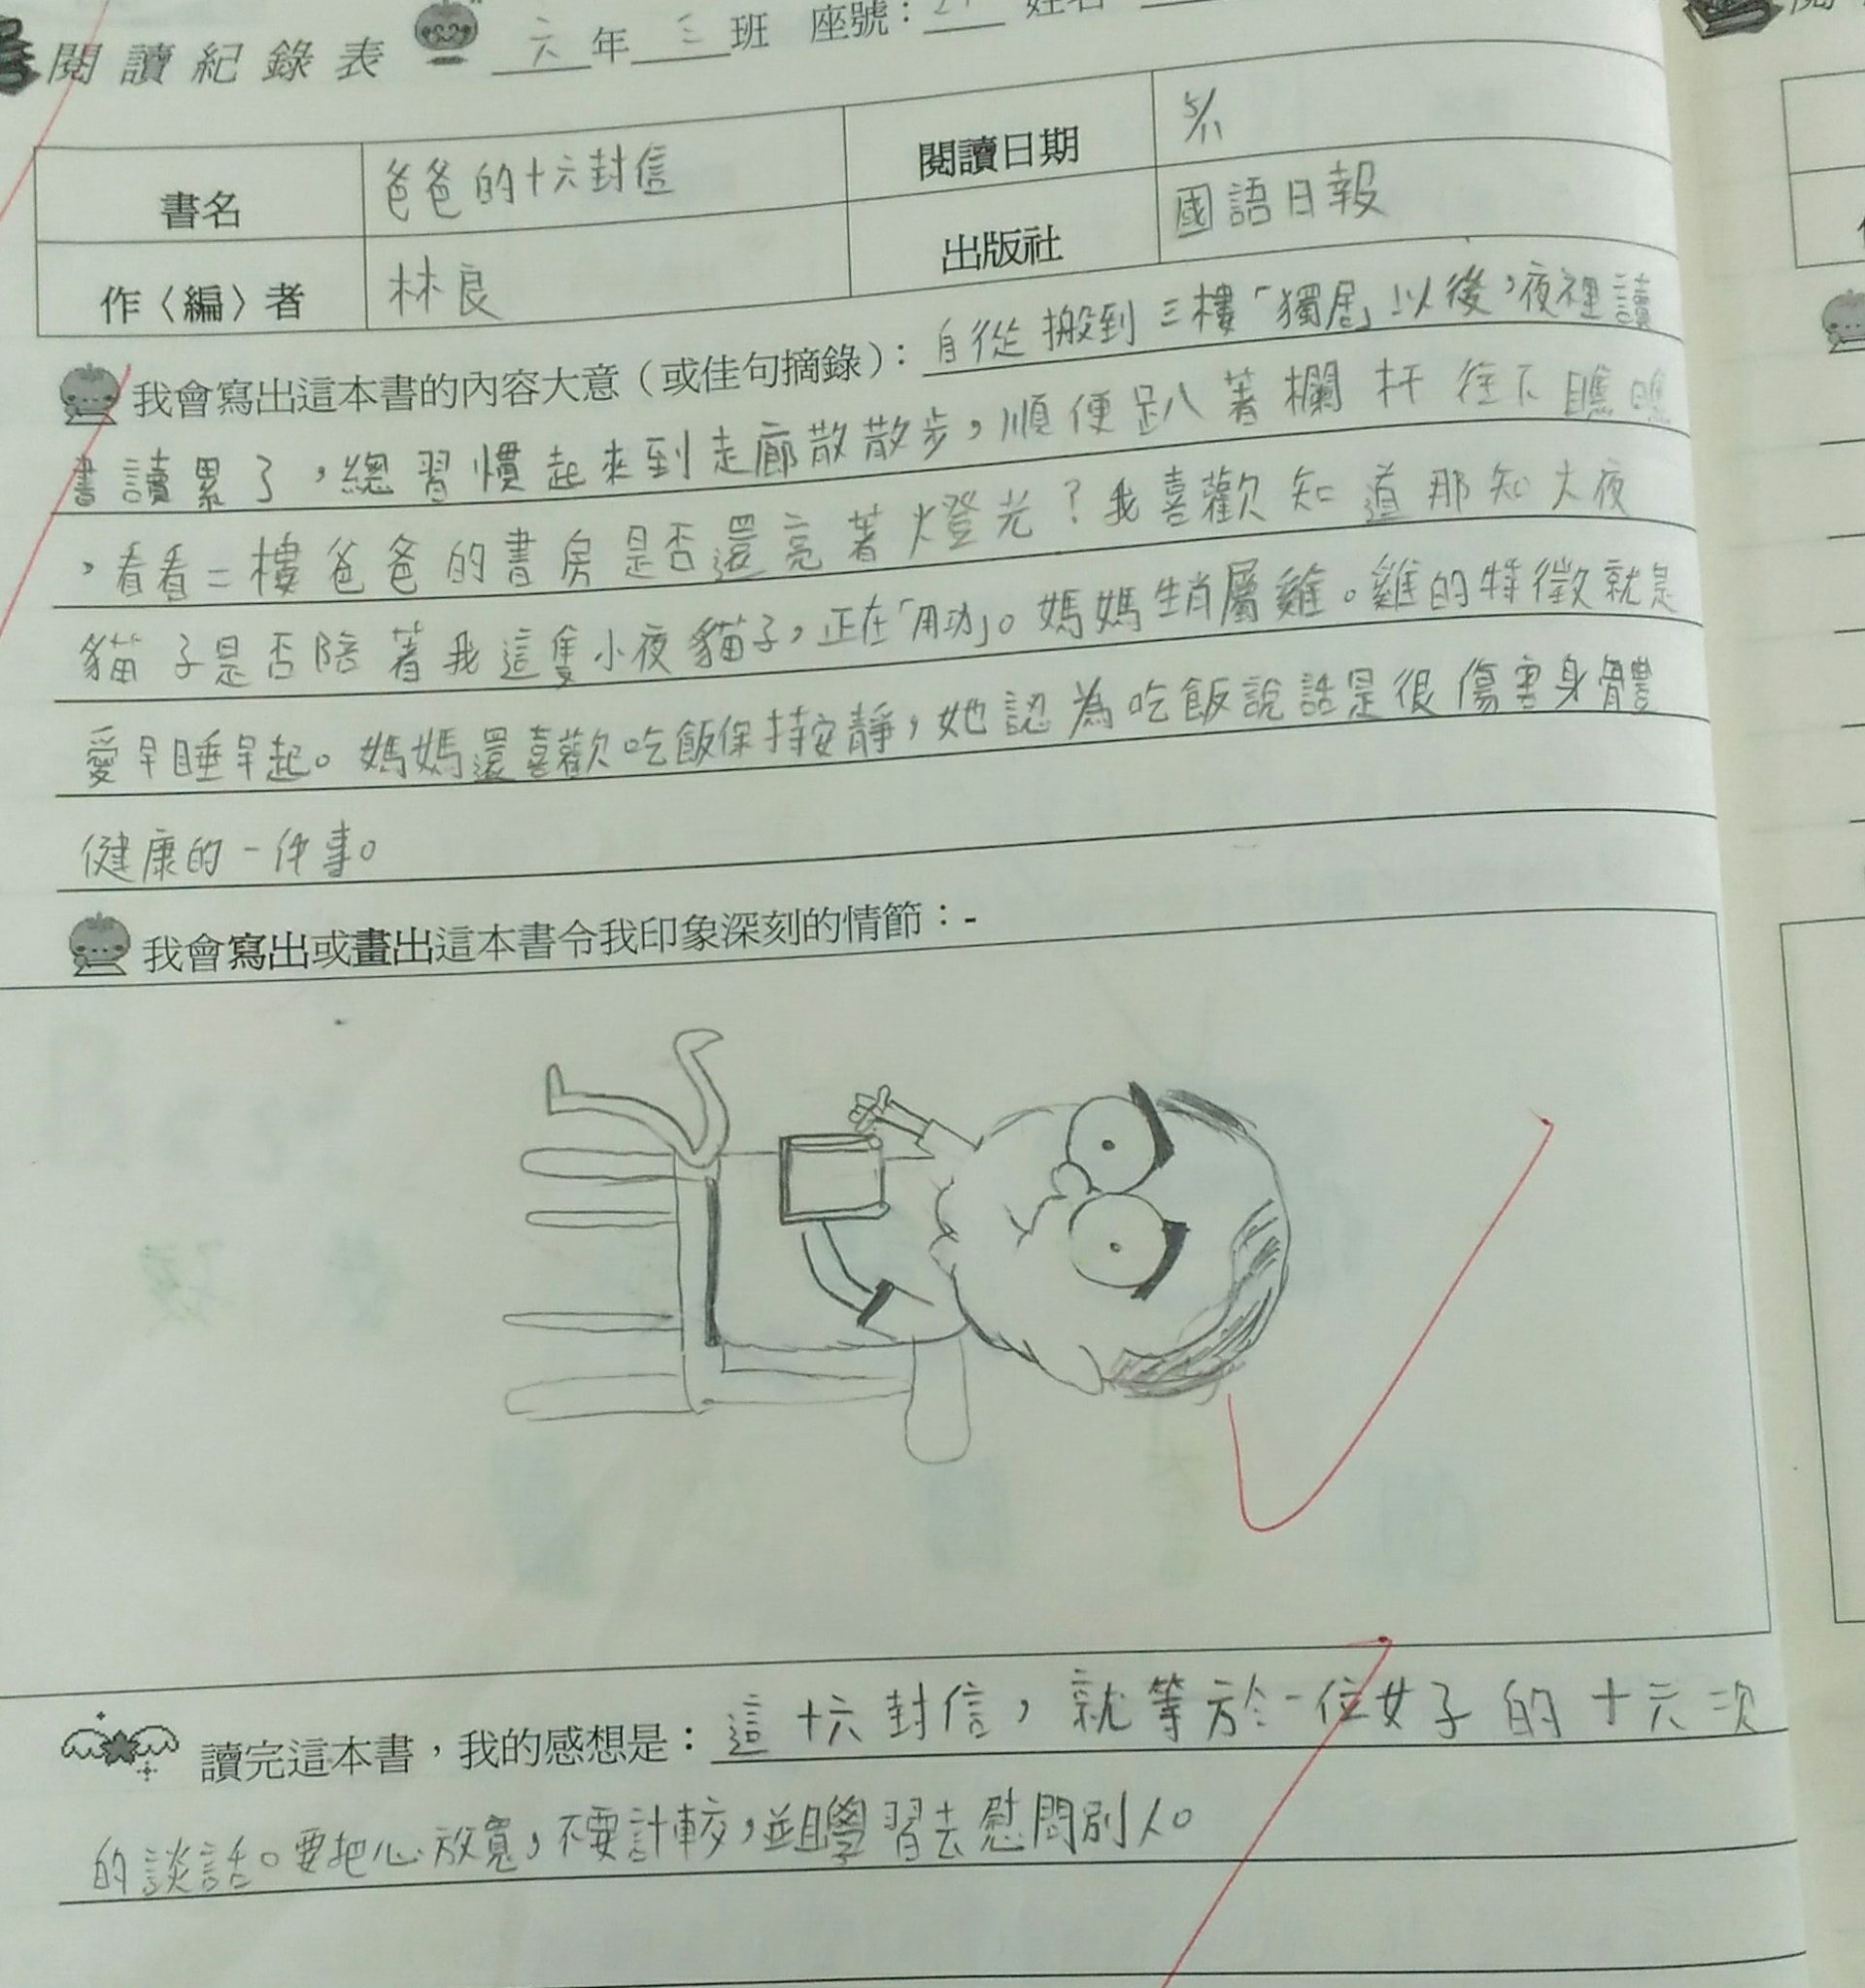 閱讀紀錄表 六年三班 座號：
書名 爸爸的十六封信 閱讀日期 5/11
作〈編〉者 林良 出版社 國語日報
我會寫出這本書的內容大意（或佳句摘錄）：自從搬到三樓「獨居」以後，夜裡讀
書讀累了，總習慣起來到走廊散散步，順便趴著欄杆往下瞧瞧
，看看二樓爸爸的書房是否還亮著燈光？我喜歡知道那知大夜
貓子是否陪著我這隻小夜貓子，正在「用功」。媽媽生肖屬雞。雞的特徵就是
愛早睡早起。媽媽還喜歡吃飯保持安靜，她認為吃飯說話是很傷害身體
健康的一件事。
我會寫出或畫出這本書令我印象深刻的情節：-
讀完這本書，我的感想是：這十六封信，就等於一位女子的十六次
的談話。要把心放寬，不要計較，並且學習去慰問別人。